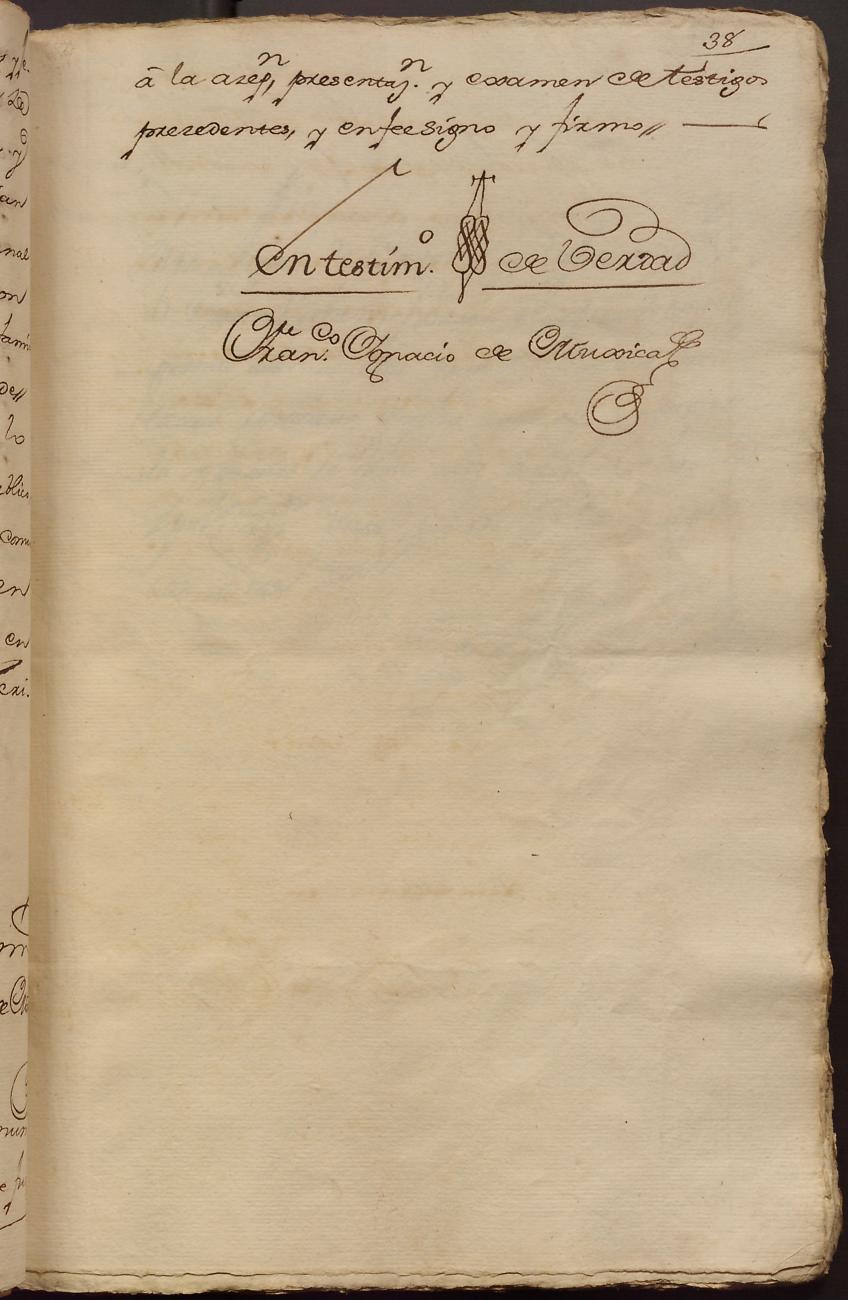 38
â la azep,n presentaz.n y examen de testigos
prezedentes, y en fee signo y firmo //
En testim.o de Verdad
Fran.co Ignacio de Muxica